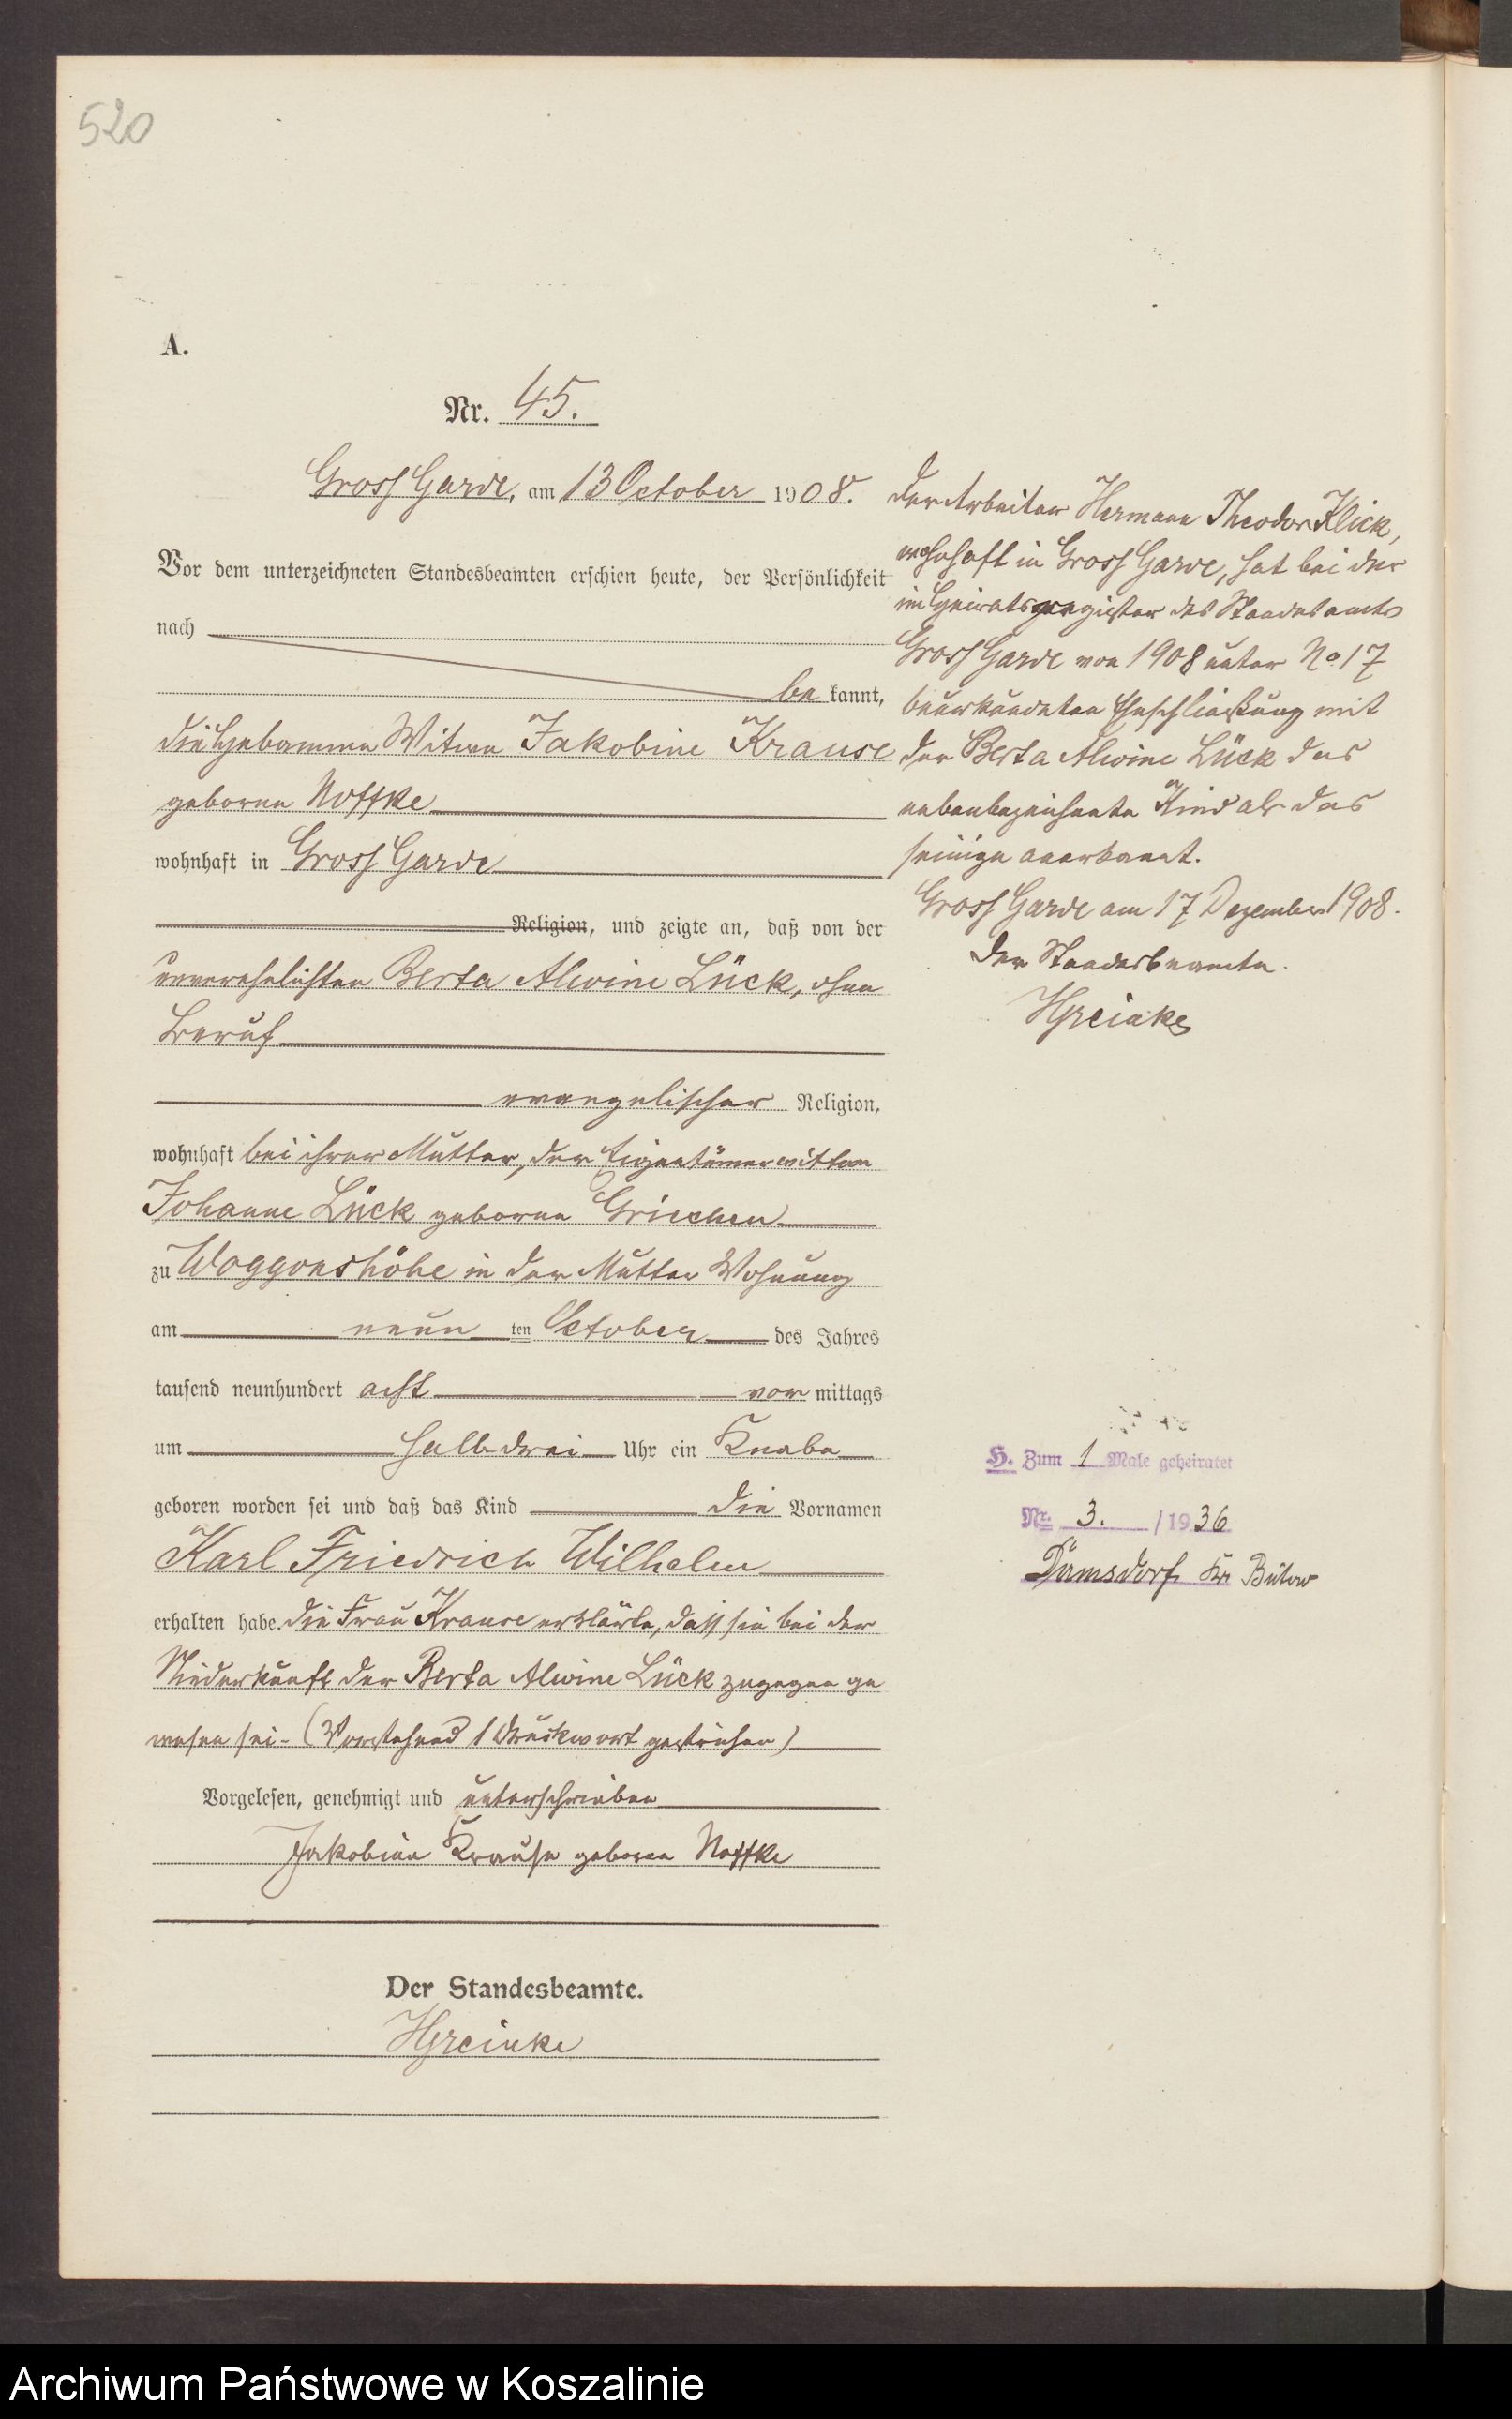 520
A.
Nr. 45.
Gross Garde, am 13 October 1908.
Vor dem unterzeichneten Standesbeamten erschien heute, der Persönlichkeit
nach
be kannt,
die Hebamme Witwe Jakobine Krause
geborne Noffke
wohnhaft in Gross Garde
Religion, und zeigte an, daß von der
unverehelichten Berta Alwine Lück, ohne
Beruf
evangelischer Religion,
wohnhaft bei ihrer Mutter, der Eigentümerwittwe
Johanne Lück geborne Griechen
zu Woggonshöhe in der Mutter Wohnung
am neun ten October des Jahres
tausend neunhundert acht vor mittags
um halb drei Uhr ein Knabe
geboren worden sei und daß das Kind die Vornamen
Karl Friedrich Wilhelm
erhalten habe. Die Frau Krause erklärte, dass sie bei der
Niederkunft der Berta Alwine Lück zugegen ge
wesen sei. (Vorstehend 1 Druckwort gestrichen)
Vorgelesen, genehmigt und unterschrieben
Jakobine Krause geborne Noffke
Der Standesbeamte.
HReinke
Der Arbeiter Hermann Theodor Klick,
wohnhaft in Gross Garde, hat bei der
im Heiratsregister des Standesamts
Gross Garde von 1908 unter No 17
beurkundeten Eheschließung mit
der Berta Alwine Lück das
nebenbezeichnete Kind als das
seinige anerkannt.
Gross Garde am 17 Dezember 1908.
Der Standesbeamte.
HReinke
H. Zum 1 Male geheiratet
Nr. 3. /1936
Damsdorf Kr Bütow
Archiwum Państwowe w Koszalinie